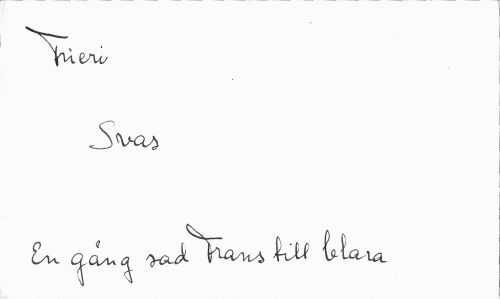 Frieri
Svas
En gång sad Frans till Clara